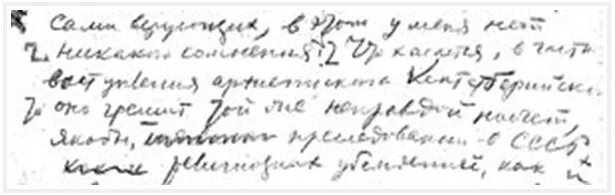 сами верующих, в этом у меня нет
никакого сомнения. Что касается, в части
выступления архиепископа Кентерберийского
то оно грешит той же неправдой насчет,
якобы, преследований в СССР
религиозных убеждений, как и